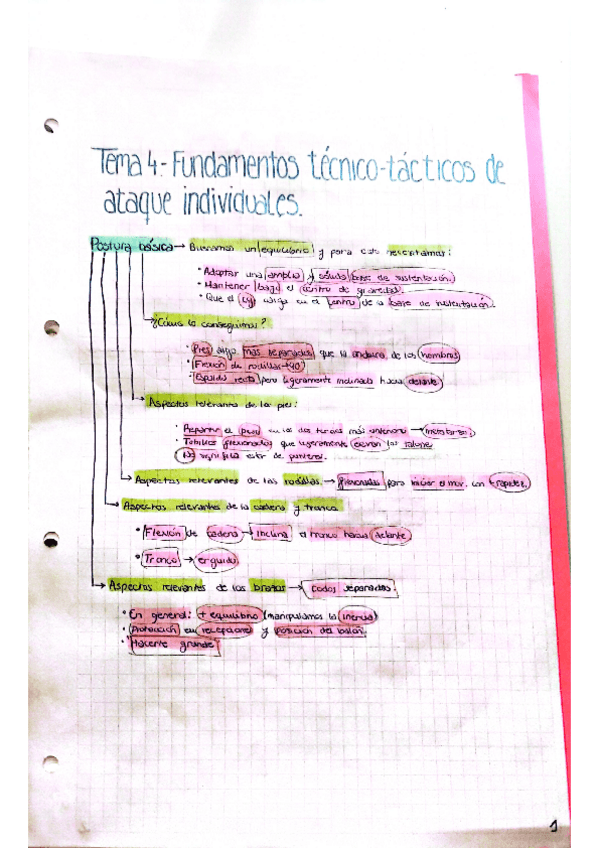 Tema 4.- Fundamentos técnico-tácticos de
ataque individuales.
Postura básica → Buscamos un equilibrio y para esto necesitamos:
• Adoptar una amplia y sólida base de sustentación.
• Mantener bajo el centro de gravedad.
• Que el cg caiga en el centro de la base de sustentación.
¿Cómo lo conseguimos?
• Pies algo más separados que la anchura de los hombros
• Flexión de rodillas → 90°
• Espalda recta pero ligeramente inclinada hacia delante
Aspectos relevantes de los pies:
• Repartir el peso en los dos tercios más anteriores → metatarso.
• Tobillos flexionados que ligeramente elevan los talones
No significa estar de puntillas.
Aspectos relevantes de las rodillas → flexionadas para iniciar el mov. con + rapidez.
Aspectos relevantes de la cadera y tronco
• Flexión de cadera → inclina el tronco hacia delante
• Tronco → erguido
Aspectos relevantes de los brazos → codos separados
• En general: + equilibrio (manipulamos la inercia)
• Protección en recepciones y posición del balón.
• "Hacerte grande"
1